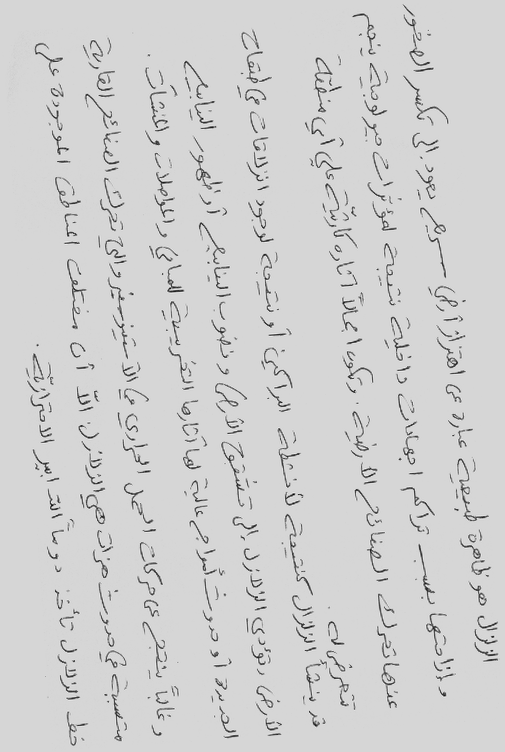 الزلزال هو ظاهرة طبيعية عبارة عن اهتزاز أرضي سريع يعود إلى تكسر الصخور
وإزاحتها بسبب تراكم اجهادات داخلية نتيجة لمؤثرات جيولوجية ينجم
عنها تحرك الصفائح الأرضية. وتكون اجمالاً آثاره كارثية على أي منطقة
تتعرض له.
قد ينشأ الزلزال كنتيجة لأنشطة البراكين أو نتيجة لوجود انزلاقات في طبقات
الأرض. وتؤدي الزلازل إلى تشقق الأرض ونضوب الينابيع أو ظهور الينابيع
الجديدة أو حدوث أمواج عالية لها آثارها التخريبية للمباني والمواصلات والمنشآت.
وغالباً ينتج عن حركات الحمل الحراري في الأستينوسفير والتي تحرك الصفائح القارية
متسببة في حدوث هزات هي الزلازل. إلا أن مختلف المناطق الموجودة على
خط الزلازل تأخذ دوماً التدابير الاحترازية.